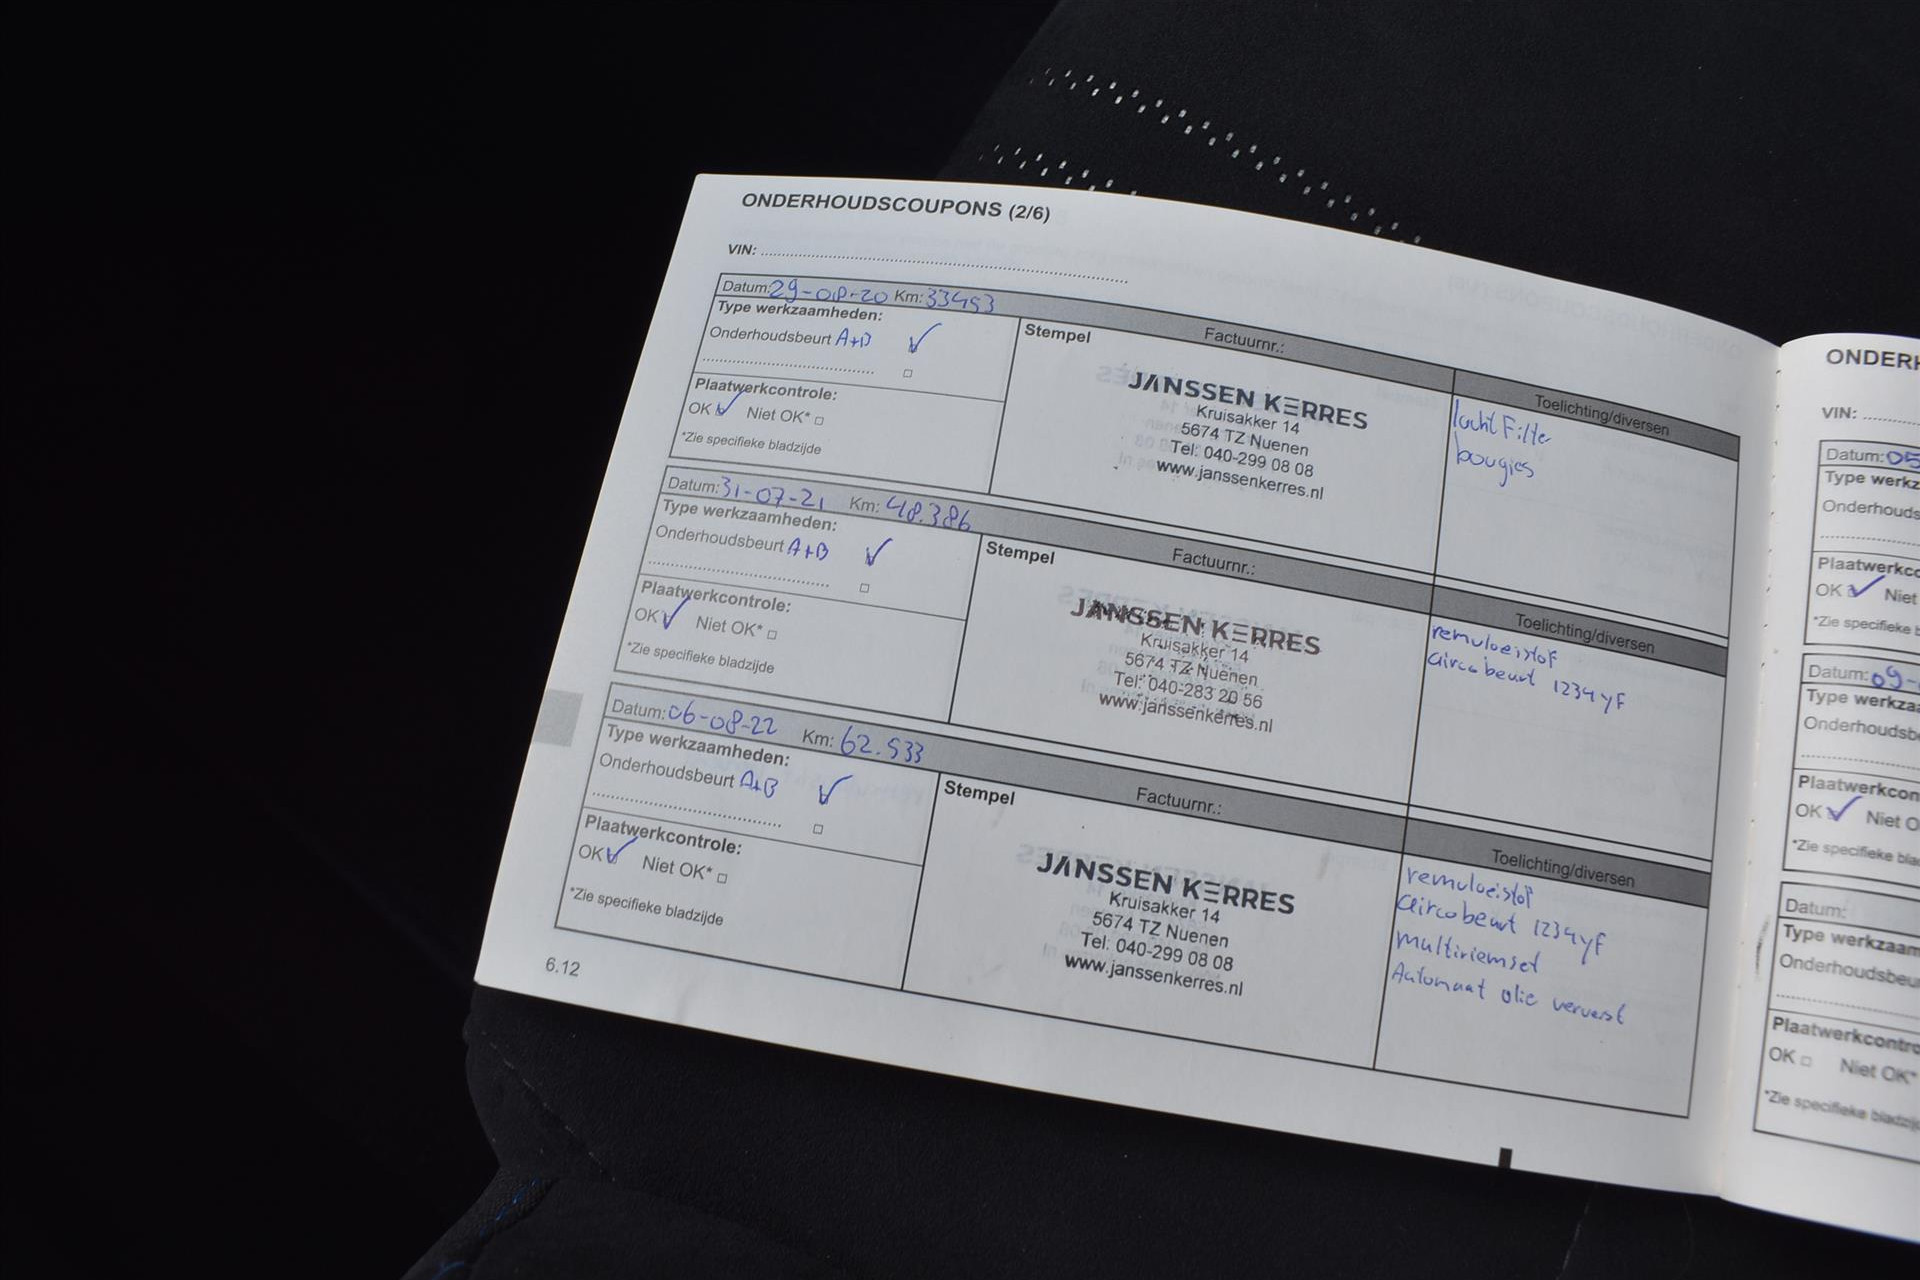 ONDERHOUDSCOUPONS (2/6)
VIN:
Datum: 29-08-20 Km: 33453
Factuurnr.:
Toelichting/diversen
Type werkzaamheden:
Onderhoudsbeurt A+B
Plaatwerkcontrole:
OK Niet OK*
*Zie specifieke bladzijde
Stempel
JANSSEN KERRES
Kruisakker 14
5674 TZ Nuenen
Tel: 040-299 08 08
www.janssenkerres.nl
lucht Filter
bougies
Datum: 31-07-21 Km: 48.386
Factuurnr.:
Toelichting/diversen
Type werkzaamheden:
Onderhoudsbeurt A+B
Plaatwerkcontrole:
OK Niet OK*
*Zie specifieke bladzijde
Stempel
JANSSEN KERRES
Kruisakker 14
5674 TZ Nuenen
Tel: 040-283 20 56
www.janssenkerres.nl
remvloeistof
aircobeurt 1234yF
Datum: 06-08-22 Km: 62.533
Factuurnr.:
Toelichting/diversen
Type werkzaamheden:
Onderhoudsbeurt A+B
Plaatwerkcontrole:
OK Niet OK*
*Zie specifieke bladzijde
Stempel
JANSSEN KERRES
Kruisakker 14
5674 TZ Nuenen
Tel: 040-299 08 08
www.janssenkerres.nl
remvloeistof
aircobeurt 1234yF
multiriemset
Automaat olie ververst
6.12
ONDERH
VIN:
Datum: 05
Type werkz
Onderhouds
Plaatwerkco
OK Niet
*Zie specifieke b
Datum: 09-
Type werkza
Onderhoudsbe
Plaatwerkcon
OK Niet O
*Zie specifieke bla
Datum:
Type werkzaam
Onderhoudsbeu
Plaatwerkcontro
OK Niet OK*
*Zie specifieke bladzij